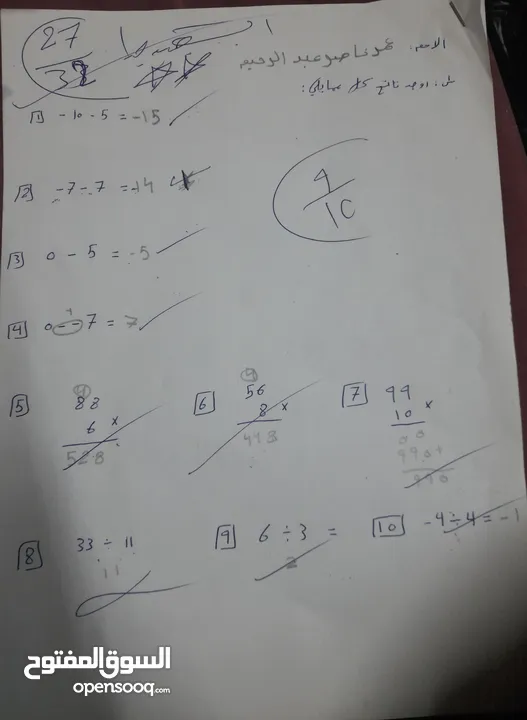 27
32
الاسم: عمر ناصر عبد الرحيم
س: اوجد ناتج كل مما يلي:
1 -10 - 5 = -15
9
10
2 -7 - 7 = -14
3 0 - 5 = -5
4 0 - - 7 = 7
5 88 6 × 528
6 56 8 × 448
7 99 10 × 00 990+ 990
8 33 ÷ 11 11
9 6 ÷ 3 = 2
10 -4 ÷ 4 = -1
السوق المفتوح
opensooq.com